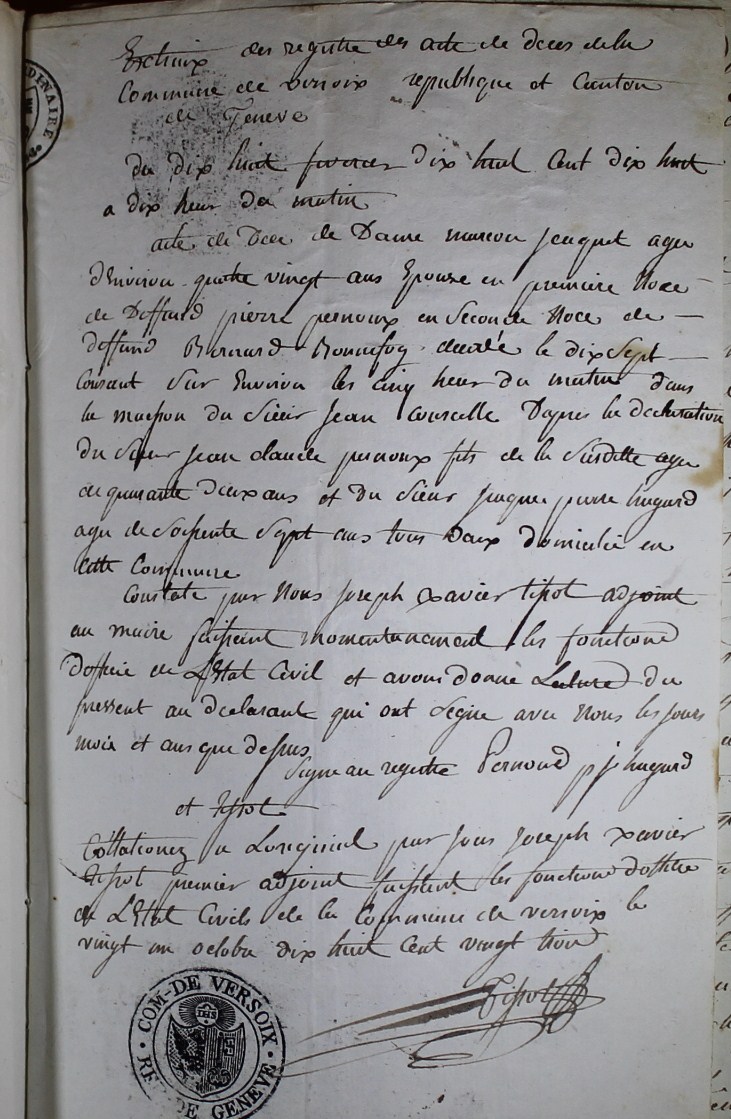 Extraix des registre des acte de deces de la
Commune de versoix republique et Canton
de Geneve
du dix huit fevrier dix huit Cent dix huit
a dix heur du matin
acte de Dece de Dame marcou jenquet agee
d'Environ quatre vingt ans Epouse en première Noce
de Deffund pierre pernoux en Seconde Noce de
deffund Bernard Bonnefoy décédé le dix Sept
Courant Sur Environ les Cinq heur du matin dans
la maeson du Sieur Jean Courselle Dapres la declaration
du Sieur Jean claude pernoux fils de la Susditte agee
de quarante deux ans et du Sieur Jaque pierre hugard
agee de Soisente Sept ans tous Deux domicilié en
cette Commune
Constaté par Nous Joseph xavier tissot adjoint
au maire faisent momentanement les fonctions
dofficie de L'Etat Civil et avons donné Lecture du
pressent au declarant qui ont Signe avec Nous les jours
mois et ans que dessus
Signe au registre Pernoud p j hugard
et tissot
Collationez a Loreginal par Nous Joseph xavier
Tissot premier adjoint faissent les fonctions d'offitie
de L'Etat Civils de la Commune de versoix le
vingt un octobre dix huit Cent vingt trois
Tissot
COM-DE VERSOIX
REP. DE GENEVE
IHS
DINAIRE